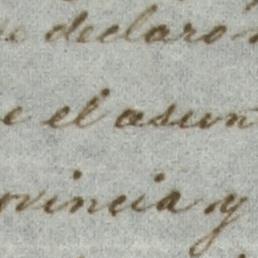 e declaro
e el asun
ovincia y